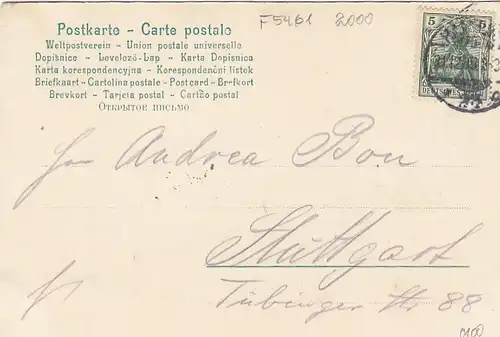 Postkarte - Carte postale
Weltpostverein - Union postale universelle
Dopisnice - Levelező-Lap - Karta Dopisnica
Karta korespondencyjna - Korespondenční lístek
Briefkaart - Cartolina postale - Postcard - Brefkort
Brevkort - Tarjeta postal - Cartão postal
Открытое письмо
F5461 2000
5
DEUTSCHES
Andrea Bon
Stuttgart
Tübinger Str 88